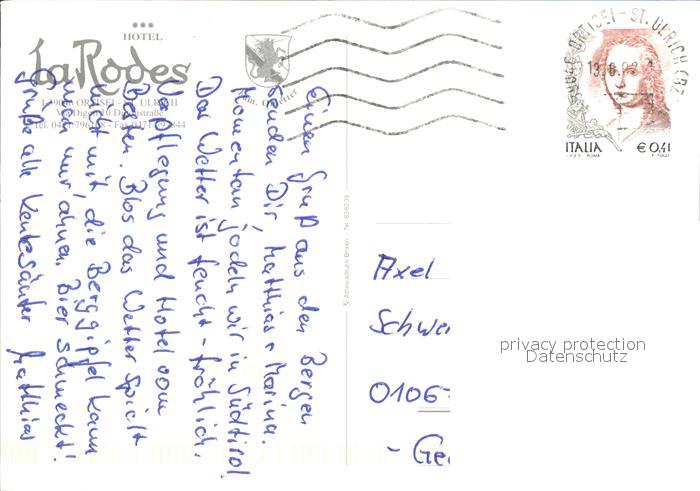 HOTEL
La Rodes
I-39046 ORTISEI - ST. ULRICH
Via Digon 10 Digonstraße
Fam.
Einen Gruß aus den Bergen
senden Dir, Matthias + Marina.
Momentan jodeln wir in Südtirol!
Das Wetter ist feucht - fröhlich.
Verpflegung und Hotel vom
Besten. Blos das Wetter spielt
nicht mit, die Berggipfel kann
man nur ahnen. Bier schmeckt!
Grüße alle
Matthias
Athesiadruck Brixen - Tel. 836239
ORTISEI - ST. ULRICH (BZ)
ITALIA
€ 0,41
I.P.Z.S. ROMA
F. TULLI
Axel
Schwe
0106
- Ge
privacy protection
Datenschutz